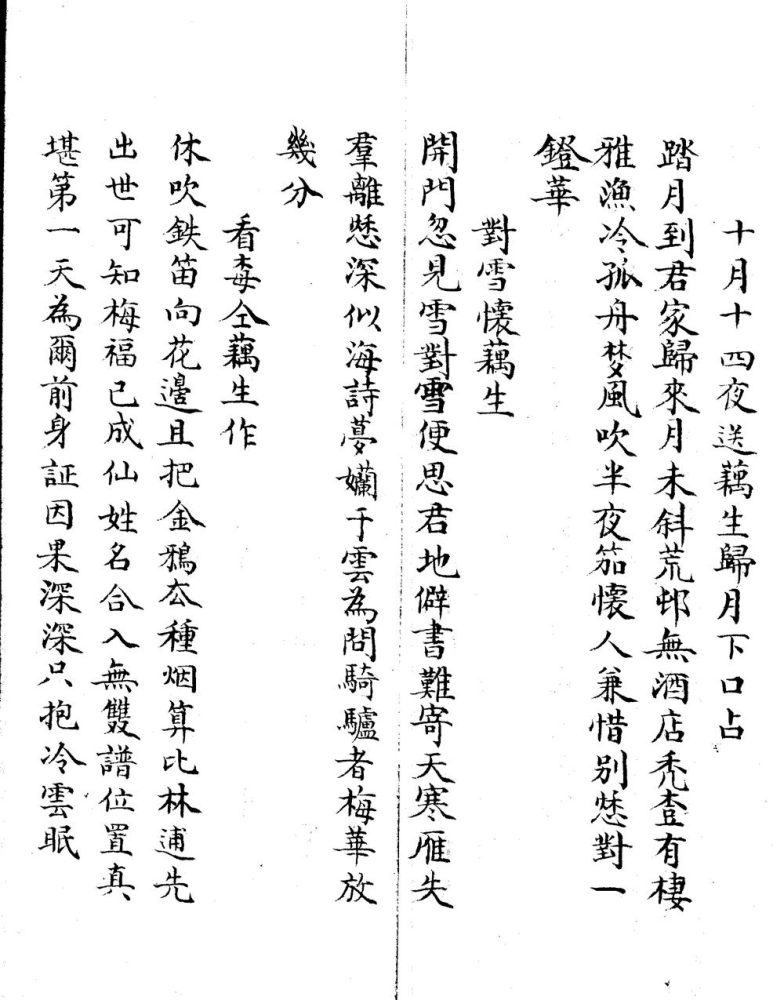 十月十四夜送藕生歸月下口占
踏月到君家歸來月未斜荒邨無酒店禿查有棲
雅漁冷孤舟梦風吹半夜笳懷人兼惜别愁對一
鐙華
對雪懷藕生
開門忽見雪對雪便思君地僻書難寄天寒雁失
羣離愁深似海詩夢嬾于雲為問騎驢者梅華放
幾分
看梅仝藕生作
休吹鉄笛向花邊且把金鴉叁種烟算比林逋先
出世可知梅福已成仙姓名合入無雙譜位置真
堪第一天為爾前身証因果深深只抱冷雲眠